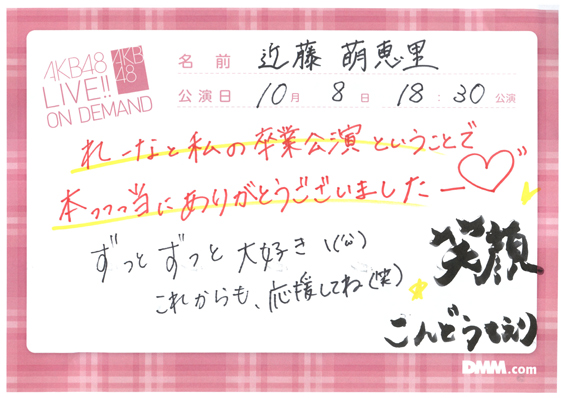 AKB48
LIVE!!
ON DEMAND
AKB
48
名前 近藤 萌恵里
公演日 10月 8日 18:30公演
れーなと私の卒業公演ということで
本っっっ当にありがとうございましたー♡
ずっとずっと大好き\(^^)
これからも、応援してね(笑)
笑顔
こんどうもえり
DMM.com